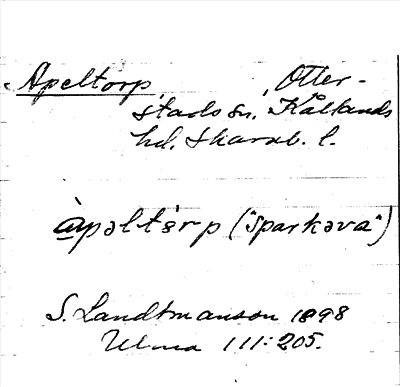 Apeltorp, Otter-
stads sn, Kållands
hd. Skarab. l.
àpəltɵ̀rp ("sparkəva")
S. Landtmanson 1898
Ulma 111:205.